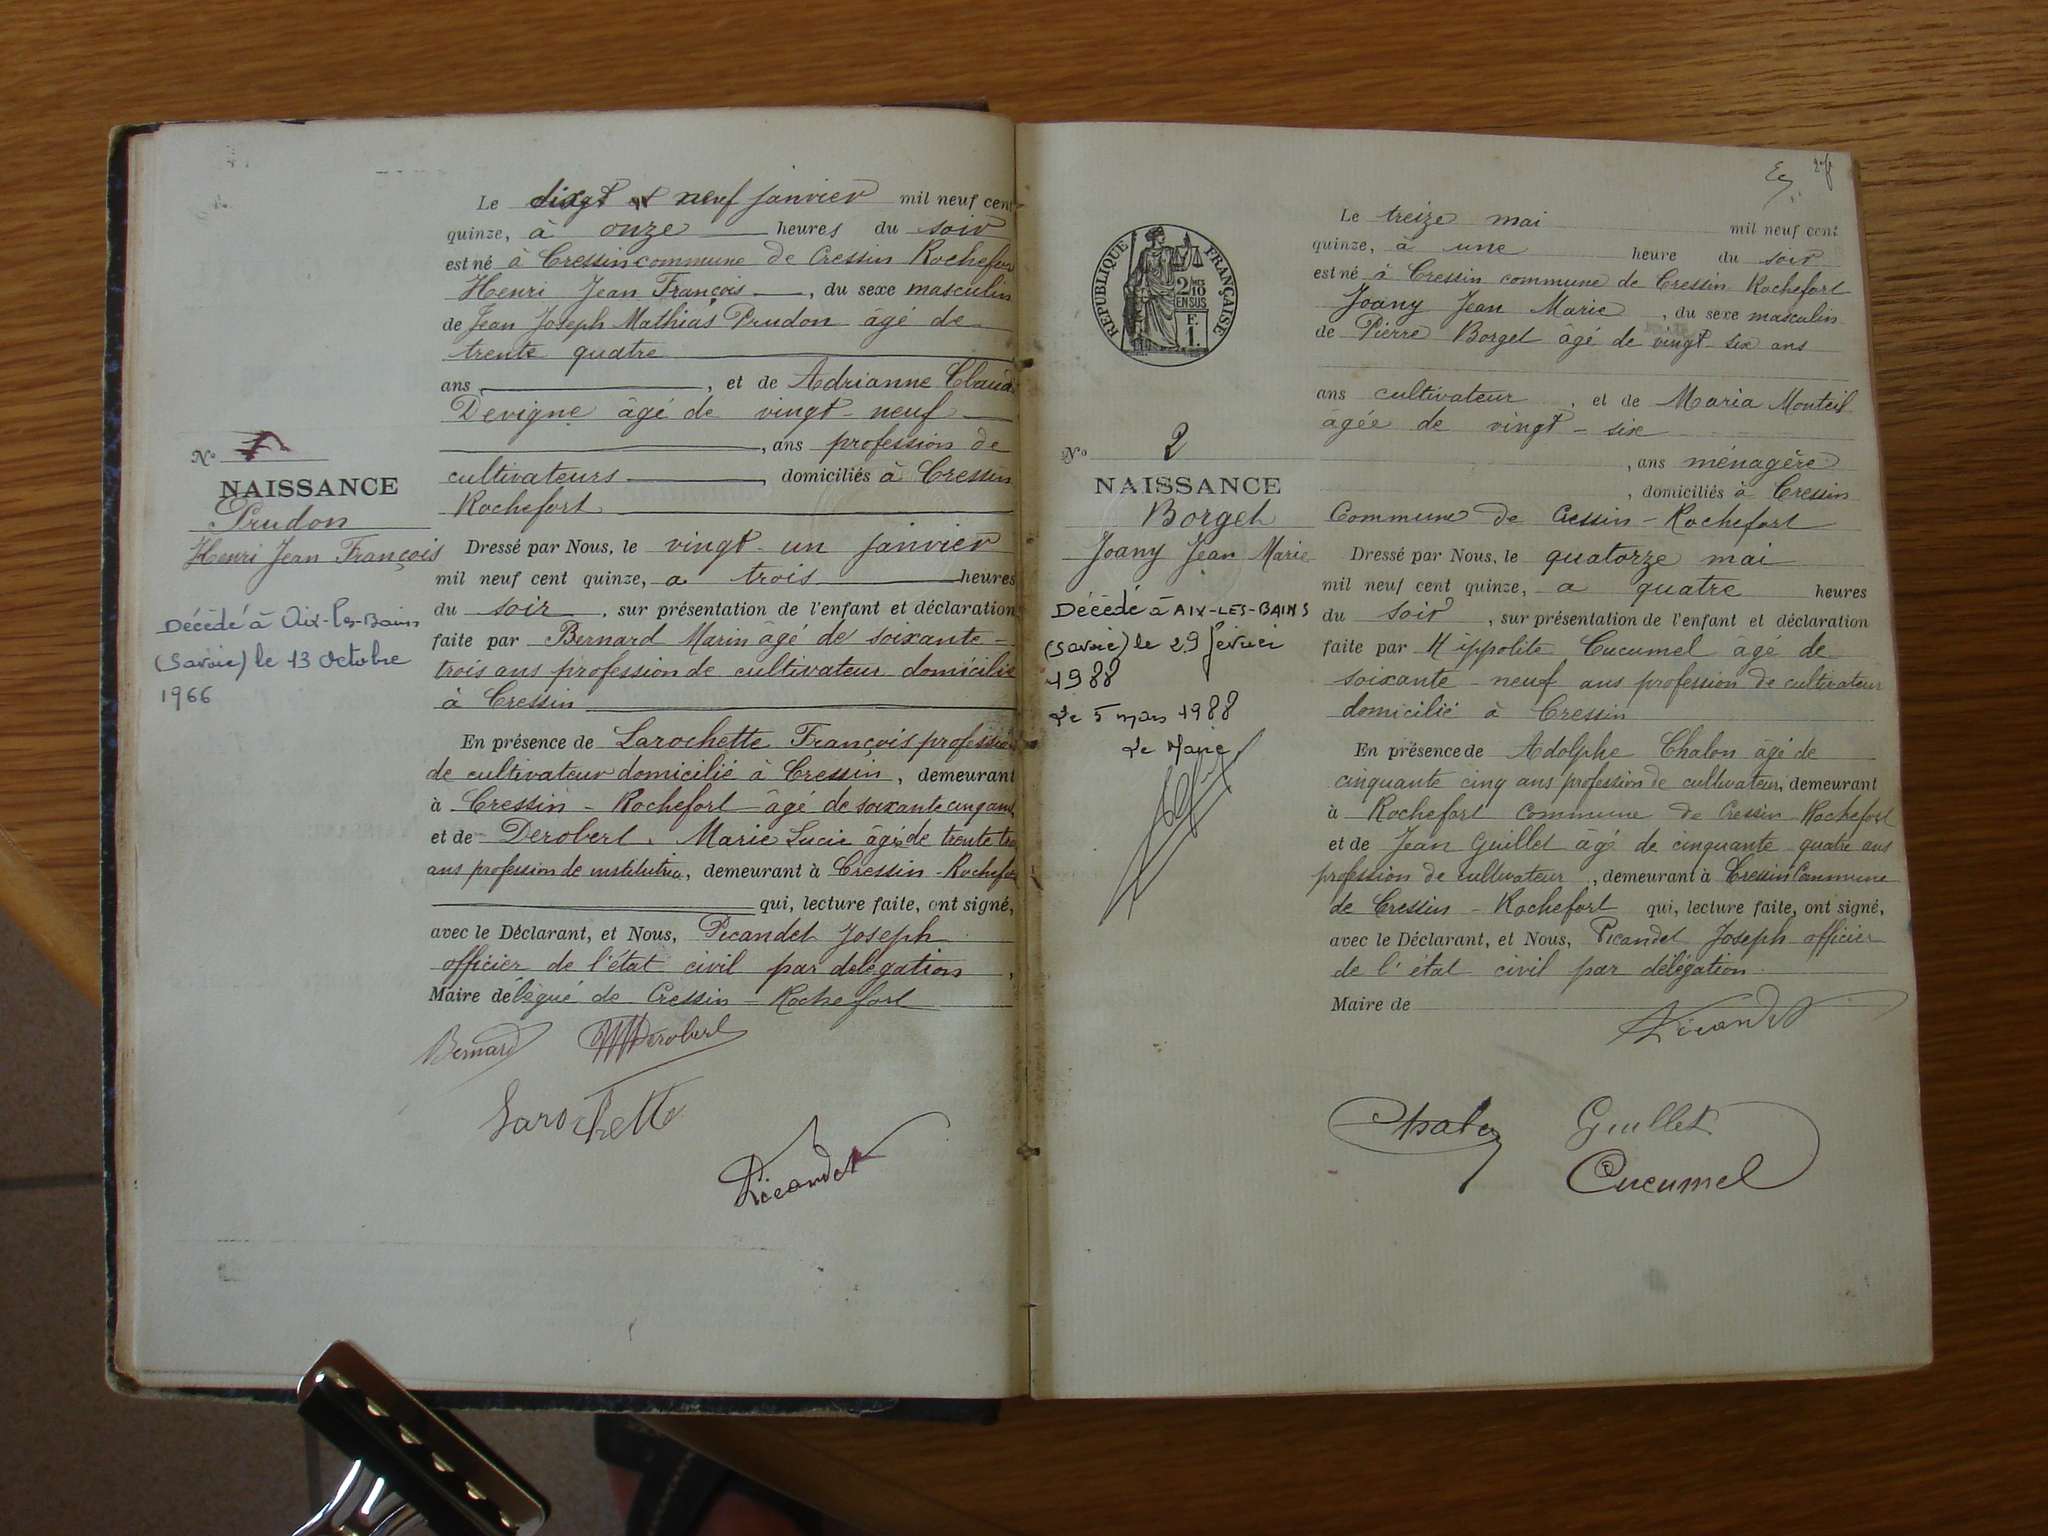 Le dixgt et neuf janvier mil neuf cent
quinze, à onze heures du soir
est né à Cressin commune de Cressin Rochefort
Henri Jean François, du sexe masculin
de Jean Joseph Mathias Prudon âgé de
trente quatre
ans, et de Adrianne Claud
Devigne âgé de vingt-neuf
, ans profession de
cultivateurs, domiciliés à Cressin
Rochefort
No
NAISSANCE
Prudon
Henri Jean François
Décédé à Aix-les-Bains
(Savoie) le 13 Octobre
1966
Dressé par Nous, le vingt-un janvier
mil neuf cent quinze, a trois heures
du soir, sur présentation de l'enfant et déclaration
faite par Bernard Marin âgé de soixante-
trois ans profession de cultivateur domicilié
à Cressin
En présence de Larochette François profession
de cultivateur domicilié à Cressin, demeurant
à Cressin-Rochefort âgé de soixante cinq ans
et de Derobert Marie Lucie âgé de trente tro
ans profession de institutrice, demeurant à Cressin-Rochefor
qui, lecture faite, ont signé,
avec le Déclarant, et Nous, Picandet Joseph
officier de l'état civil par délégation,
Maire délégué de Cressin-Rochefort
Bernard Derobert
Larochette
Picandet
2
RÉPUBLIQUE FRANÇAISE
2/10
EN SUS
F.
1.
No 2
NAISSANCE
Borget
Joany Jean Marie
Décédé à AIX-LES-BAINS
(Savoie) le 29 février
1988
Le 5 mars 1988
Le Maire
Le treize mai mil neuf cent
quinze, à une heure du soir
est né à Cressin commune de Cressin Rochefort
Joany Jean Marie, du sexe masculin
de Pierre Borget âgé de vingt-six ans
ans cultivateur, et de Maria Monteil
âgée de vingt-six
, ans ménagère
, domiciliés à Cressin
Commune de Cressin-Rochefort
Dressé par Nous, le quatorze mai
mil neuf cent quinze, a quatre heures
du soir, sur présentation de l'enfant et déclaration
faite par Hippolite Cucumel âgé de
soixante-neuf ans profession de cultivateur
domicilié à Cressin
En présence de Adolphe Chalon âgé de
cinquante cinq ans profession de cultivateur, demeurant
à Rochefort commune de Cressin Rochefort
et de Jean Guillet âgé de cinquante quatre ans
profession de cultivateur, demeurant à Cressin Commune
de Cressin-Rochefort qui, lecture faite, ont signé,
avec le Déclarant, et Nous, Picandet Joseph officier
de l'état civil par délégation
Maire de
Picandet
Chalon Guillet
Cucumel